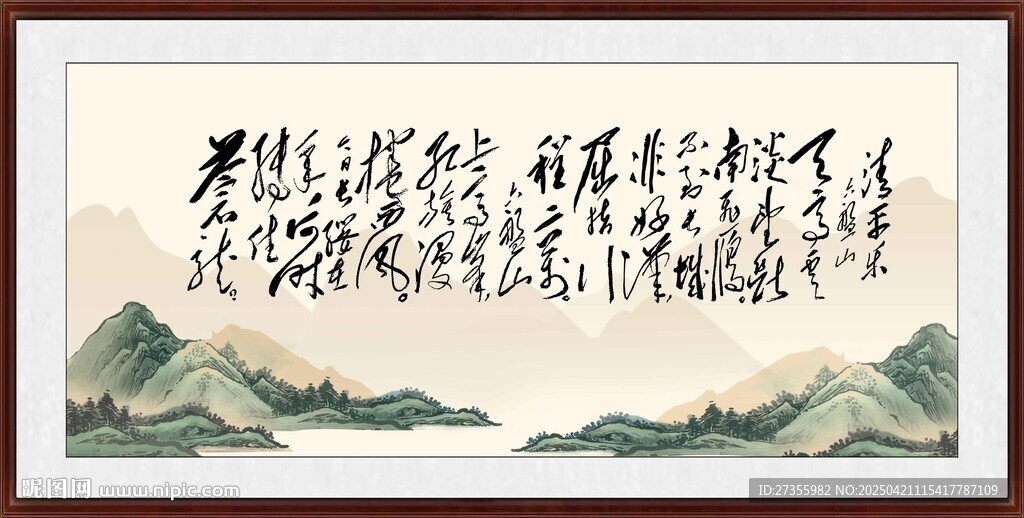 清平乐
六盤山
天高雲
淡望斷
南飛雁。
不到長城
非好漢,
屈指行
程二萬。
六盤山
上高峯,
紅旗漫
捲西風。
今日長纓在
手,何時
縛住
蒼龍。
昵图网 www.nipic.com
ID:27355982 NO:20250421115417787109